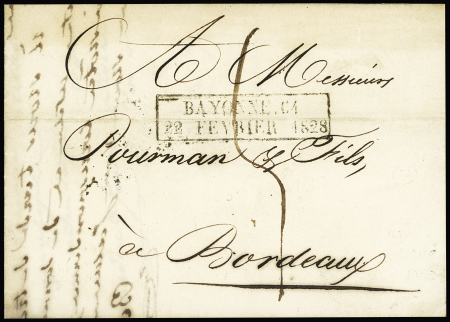 A Messieurs
BAYONNE. 64
22 FEVRIER 1828
Pourman & Fils,
à Bordeaux